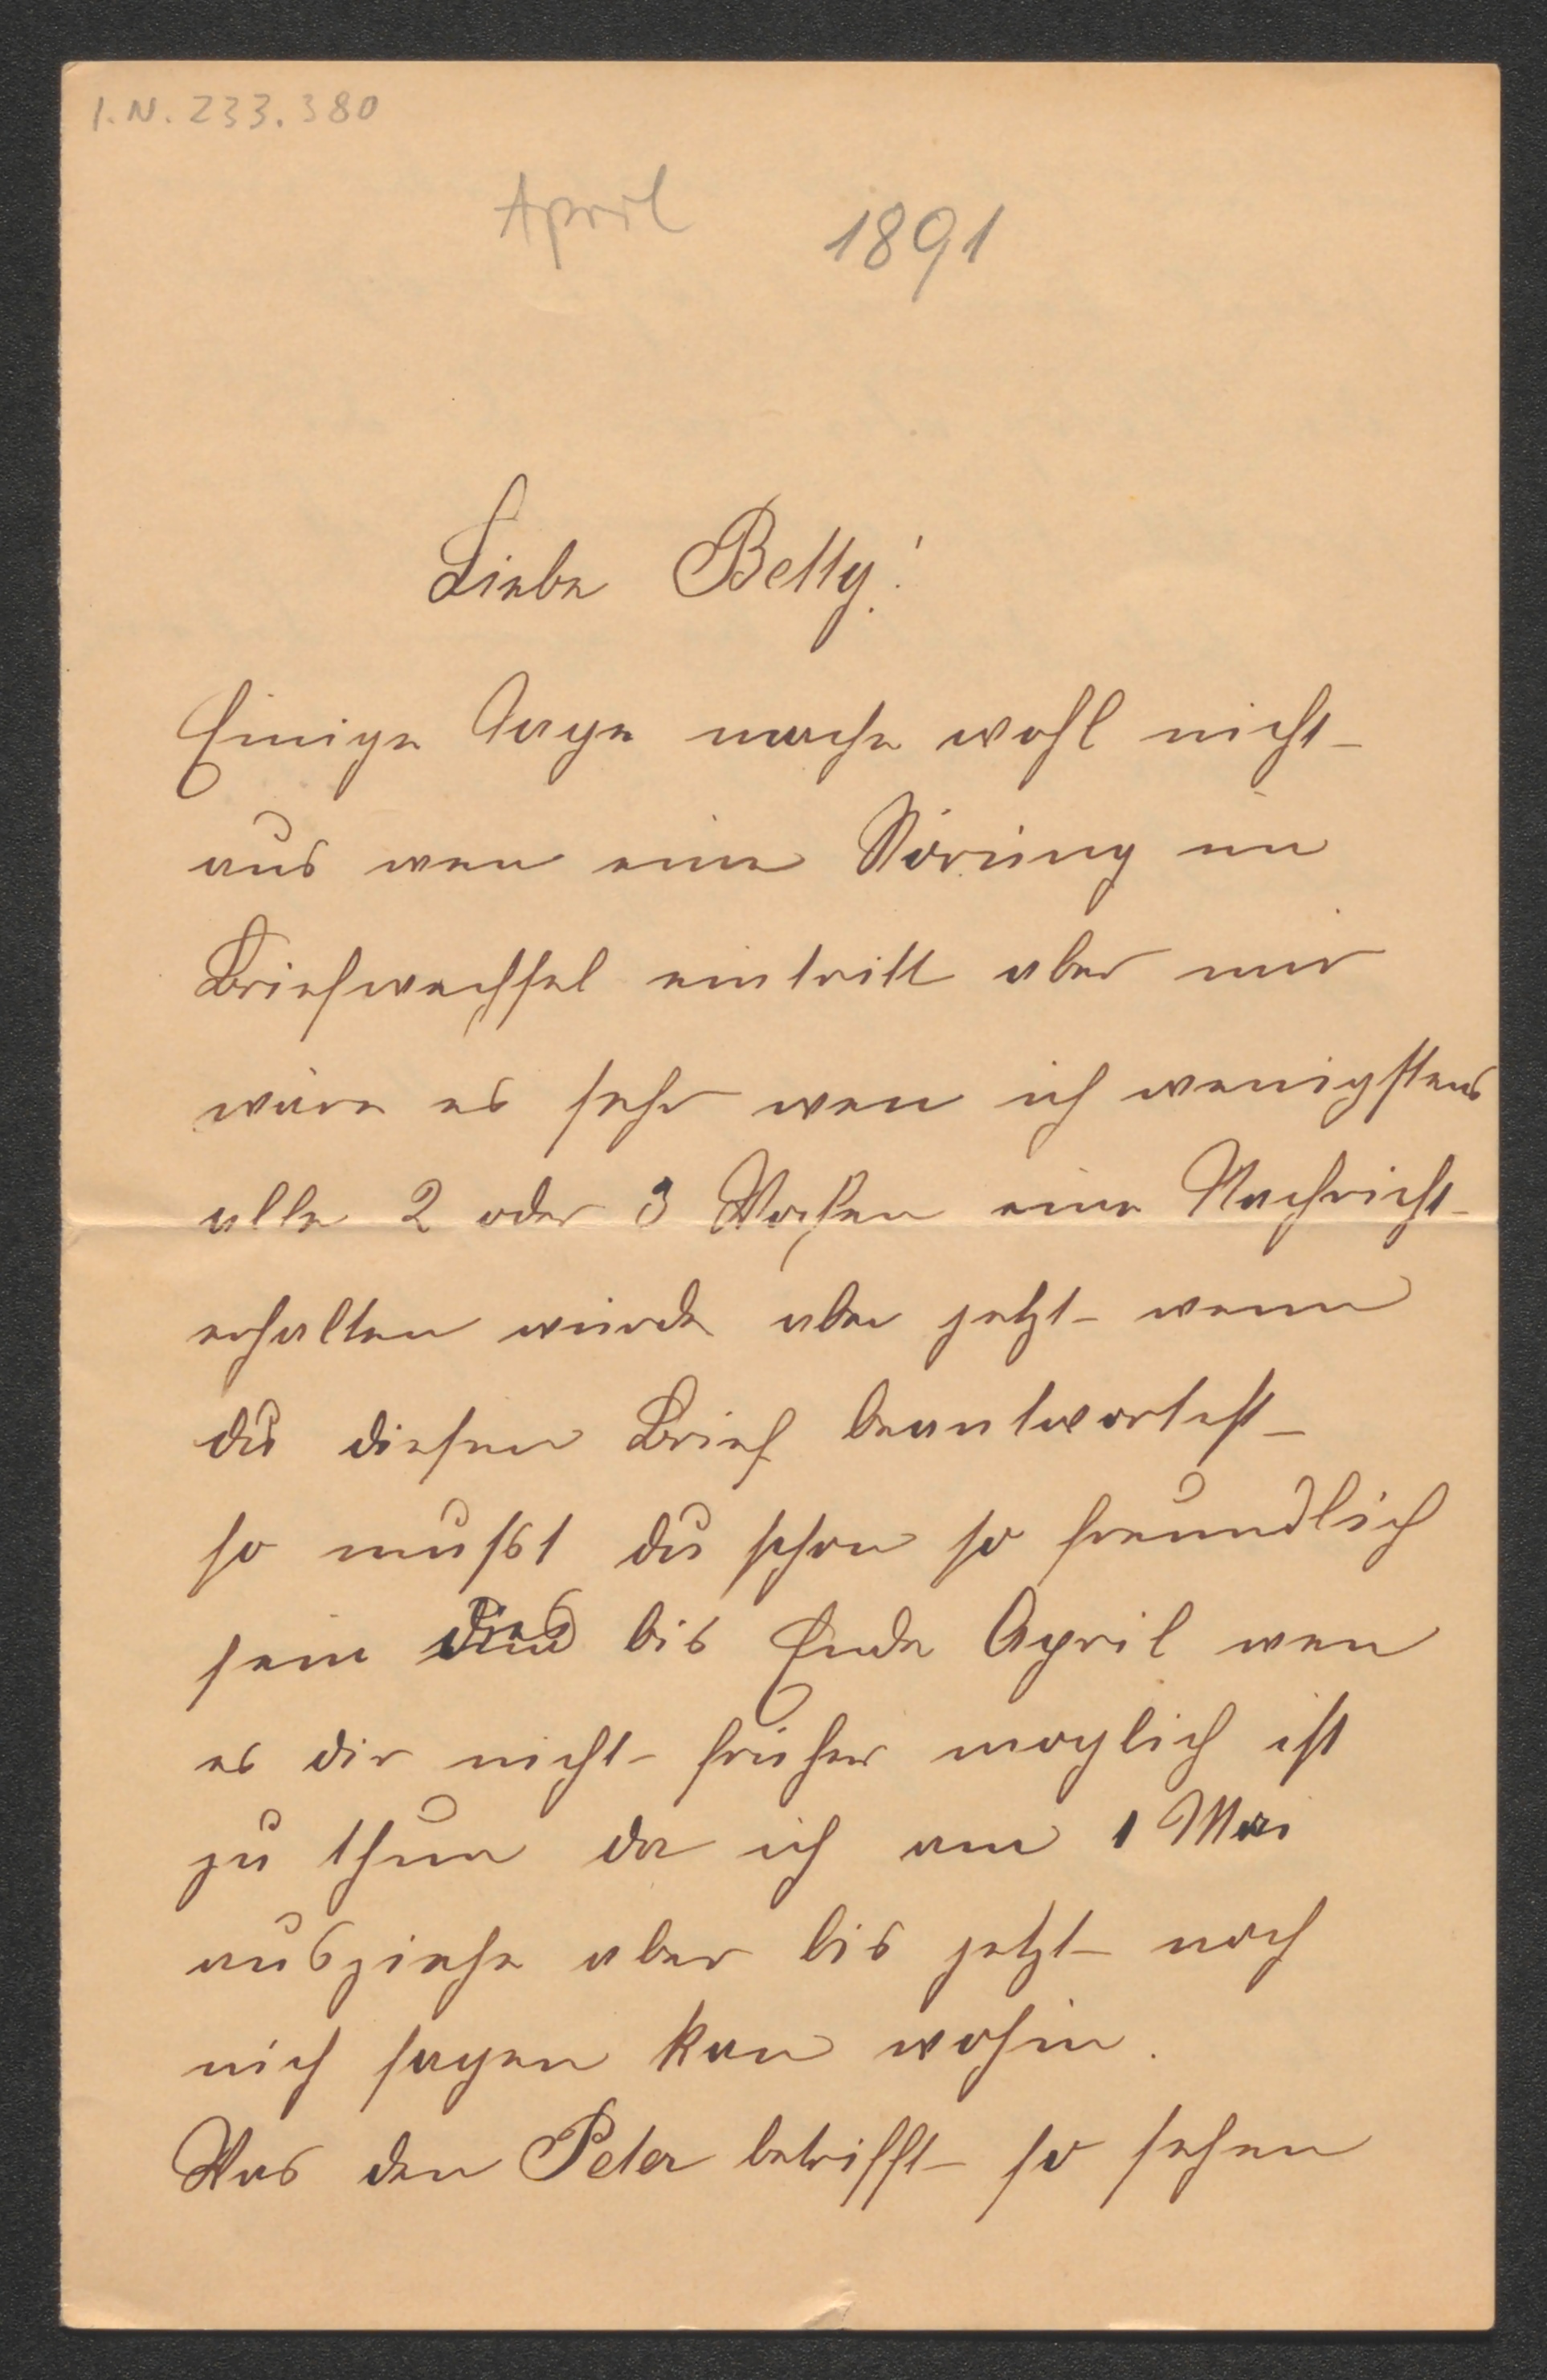 I.N. 233.380
April 1891
Liebe Betty!
Einige Tage mache wohl nicht
aus wen eine Störung im
Briefwechsel eintritt aber mir
wäre es sehr wen ich wenigstens
alle 2 oder 3 Wochen eine Nachricht
erhalten würde aber jetzt wenn
du diesen Brief beantwortest
so mußt du schon so freundlich
sein dies bis Ende April wen
es dir nicht früher moglich ist
zu thun da ich am 1 Mai
ausziehe aber bis jetzt noch
nich sagen kan wohin.
Was den Peter betrifft so sehen